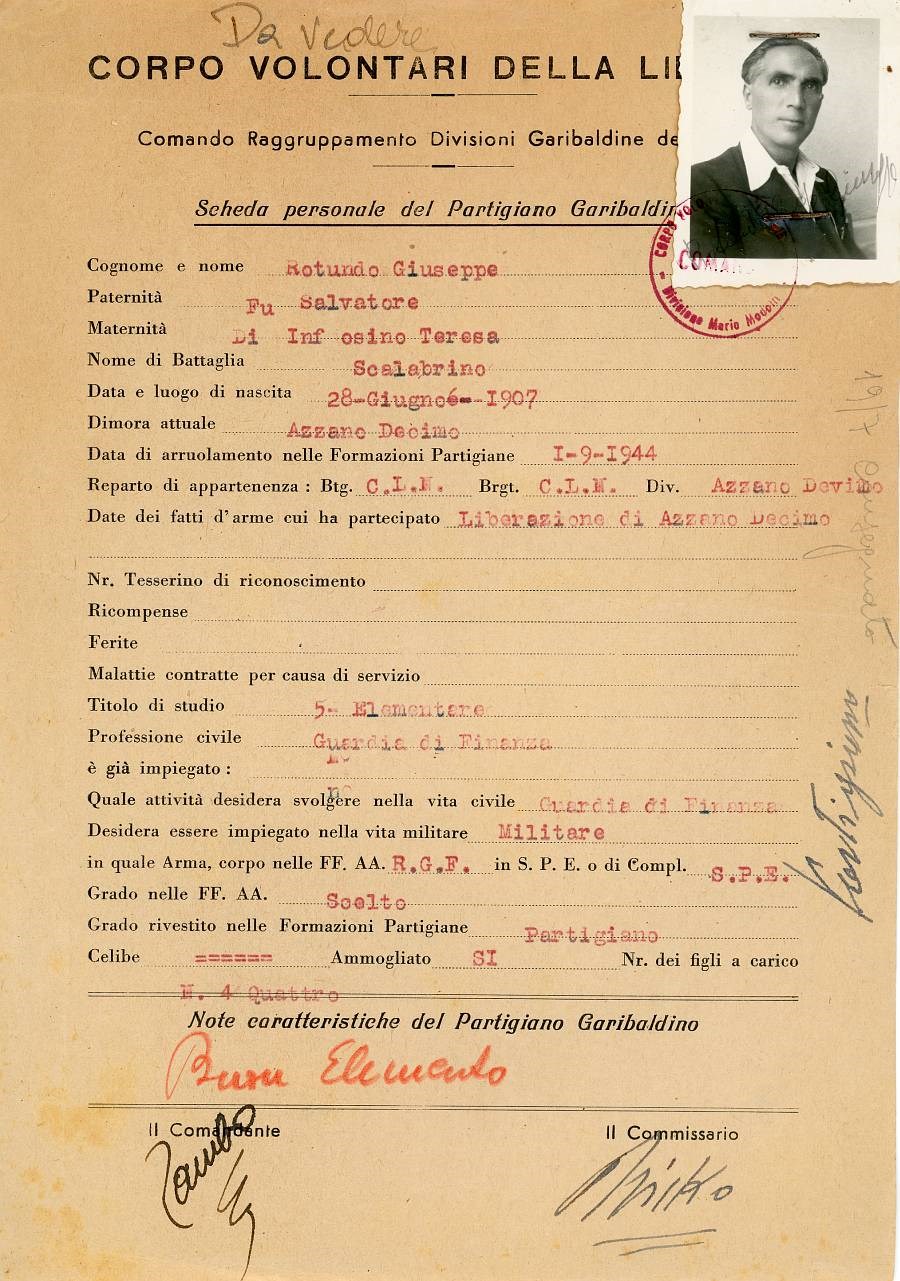 Da vedere
CORPO VOLONTARI DELLA LI
Comando Raggruppamento Divisioni Garibaldine de
Scheda personale del Partigiano Garibaldin
CORPO VOLO
COMAN
Divisione Mario Modotti
Cognome e nome Rotundo Giuseppe
Paternità Fu Salvatore
Maternità Di Inf osino Teresa
Nome di Battaglia Scalabrino
Data e luogo di nascita 28-Giugnoé--I907
Dimora attuale Azzano Decimo
Data di arruolamento nelle Formazioni Partigiane I-9-I944
Reparto di appartenenza : Btg. C.L.N. Brgt. C.L.N. Div. Azzano Devimo
Date dei fatti d'arme cui ha partecipato Liberazione di Azzano Decimo
Nr. Tesserino di riconoscimento
Ricompense
Ferite
Malattie contratte per causa di servizio
Titolo di studio 5- Elementare
Professione civile Guardia di Finanza
è già impiegato : No
no
Quale attività desidera svolgere nella vita civile Guardia di Finanza
Desidera essere impiegato nella vita militare Militare
in quale Arma, corpo nelle FF. AA. R.G.F. in S. P. E. o di Compl. S.P.E.
Grado nelle FF. AA. Scelto
Grado rivestito nelle Formazioni Partigiane Partigiano
Celibe ====== Ammogliato SI Nr. dei figli a carico
N. 4 Quattro
Note caratteristiche del Partigiano Garibaldino
Buon Elemento
Il Comandante Il Commissario
Mirko
19/7 Consegnato